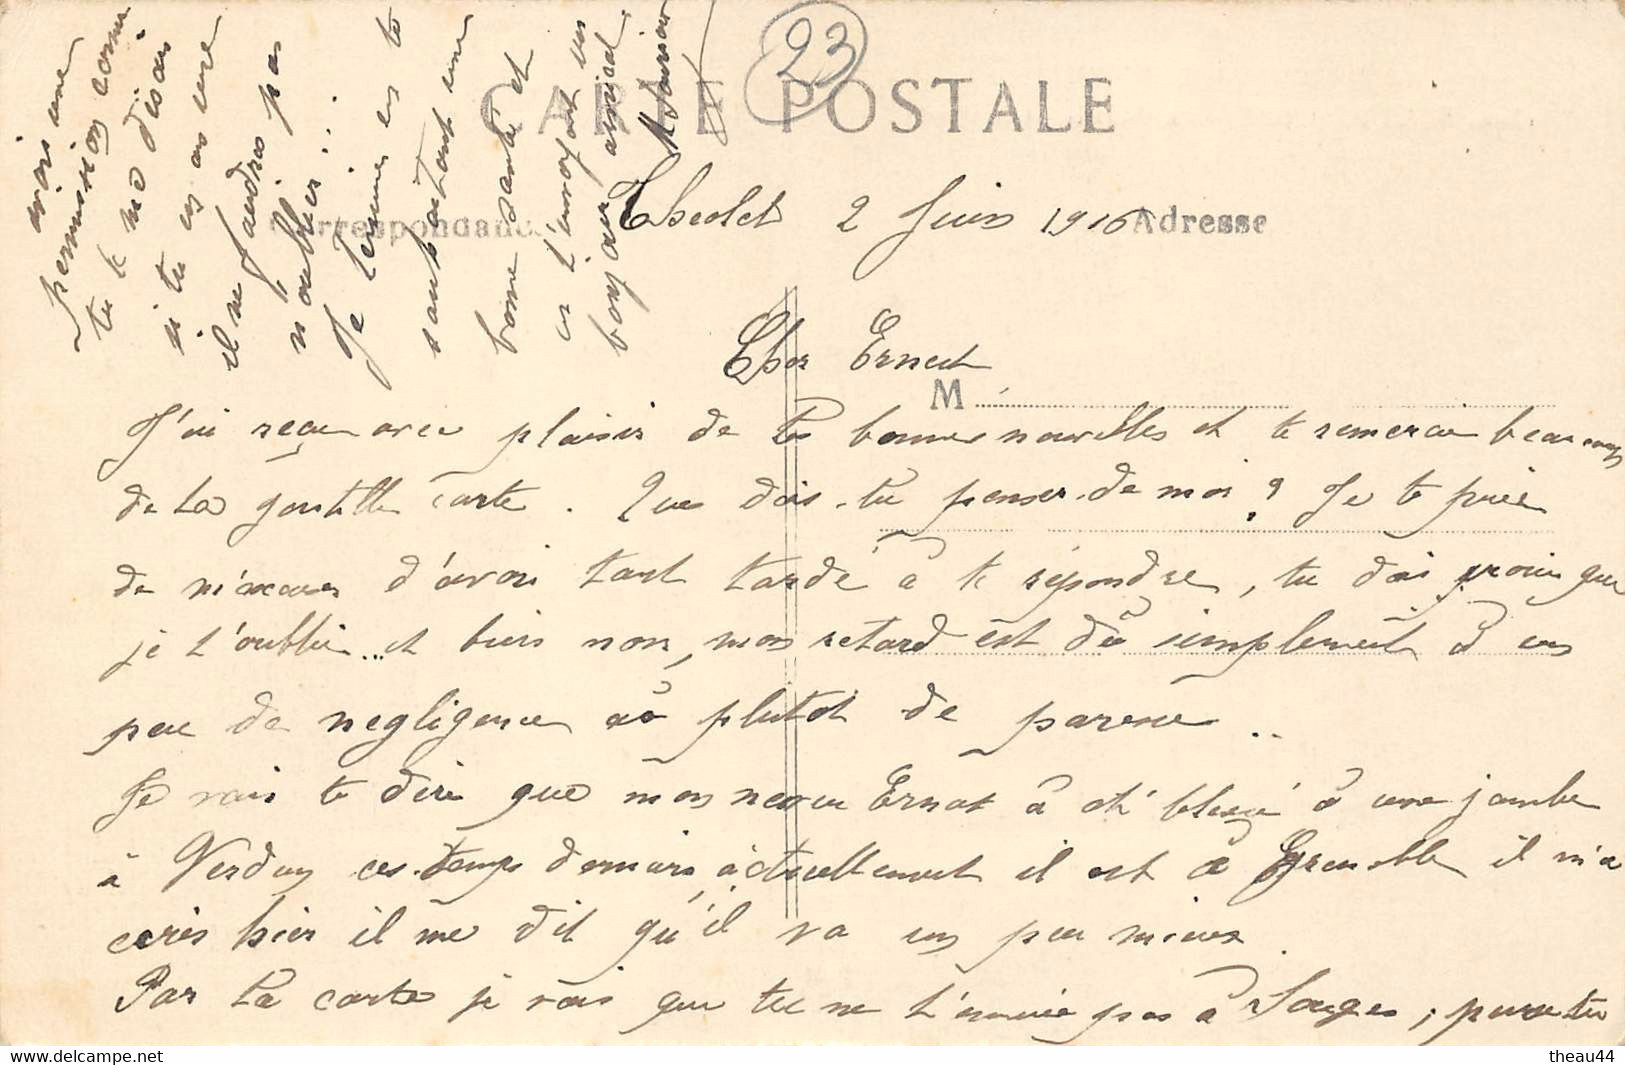 23
CARTE POSTALE
Correspondance
Adresse
Cholet 2 Juin 1916
Cher Ernest
M
J'ai reçu avec plaisir de tes bonnes nouvelles et te remercie beaucoup
de ta gentille carte. Que dois-tu penser de moi ? Je te prie
de m'excuser d'avoir tant tardé à te répondre, tu dois croire que
je t'oublie... et bien non, mon retard est dû simplement à un
peu de negligence ou plutôt de paresse ..
Je vais te dire que mon neveu Ernest à été blessé à une jambe
à Verdun ces temps derniers, actuellement il est à Grenoble il m'a
écris hier il me dit qu'il va un peu mieux.
Par ta carte je vois que tu ne t'ennuie pas à Souges, puisse tu
avoir une
permission comme
tu le me disais
si tu en as une
il ne faudras pas
m'oublier ....
Je termine en te
souhaitant une
bonne santé et
en t'envoyant un
bonjour amical
theau44